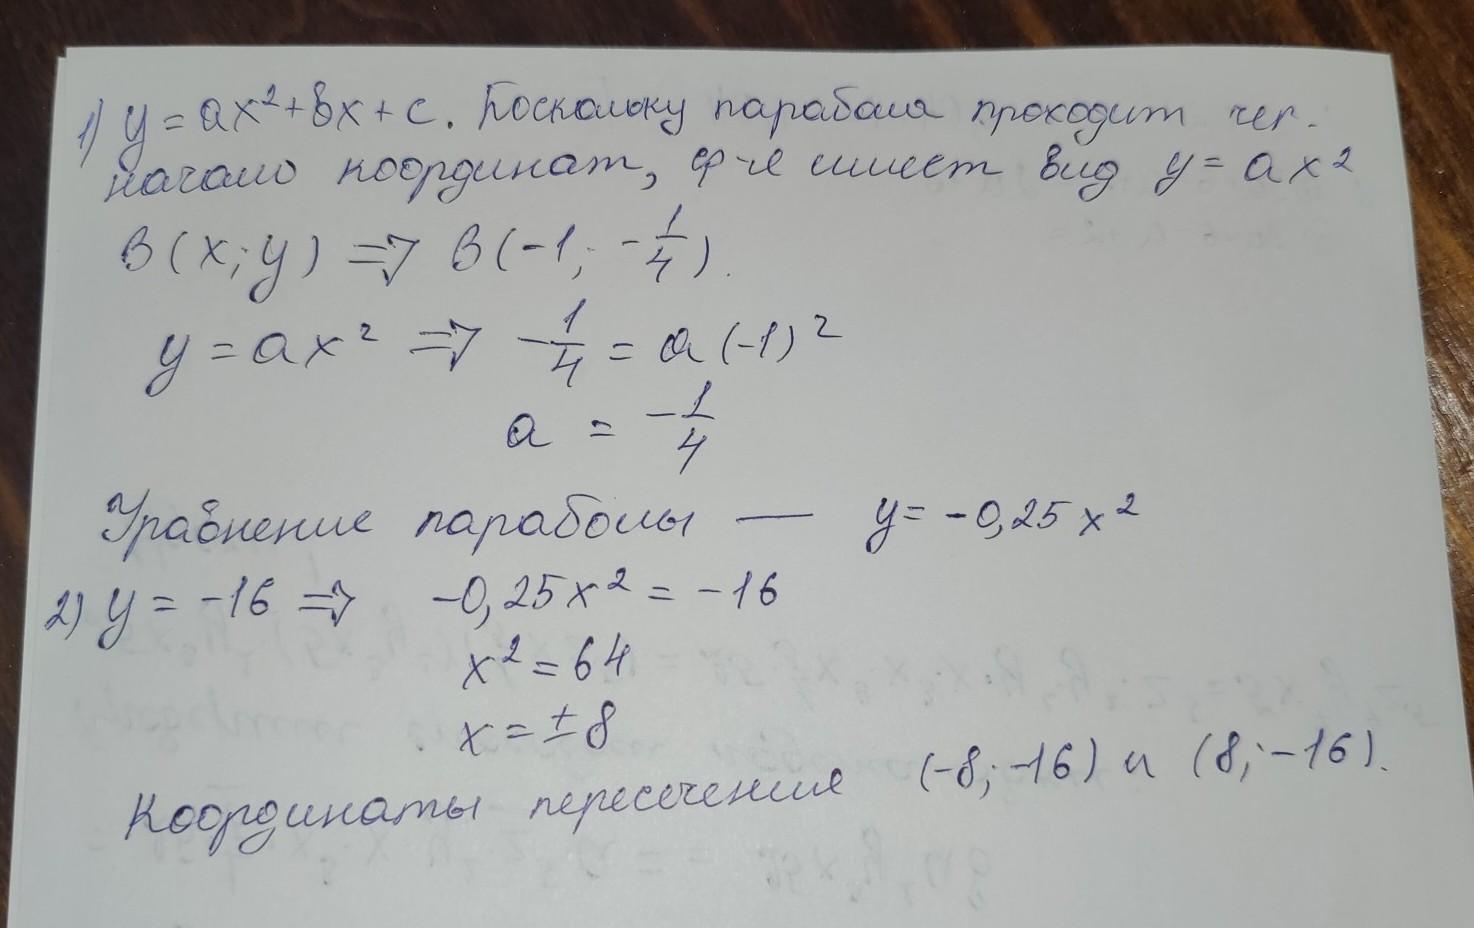 1) y = ax² + bx + c. Поскольку парабола проходит чер.
начало координат, ф-я имеет вид y = ax²
B(x; y) => B(-1; -1/4).
y = ax² => -1/4 = a(-1)²
a = -1/4
Уравнение параболы — y = -0,25x²
2) y = -16 => -0,25x² = -16
x² = 64
x = ±8
Координаты пересечения (-8; -16) и (8; -16).